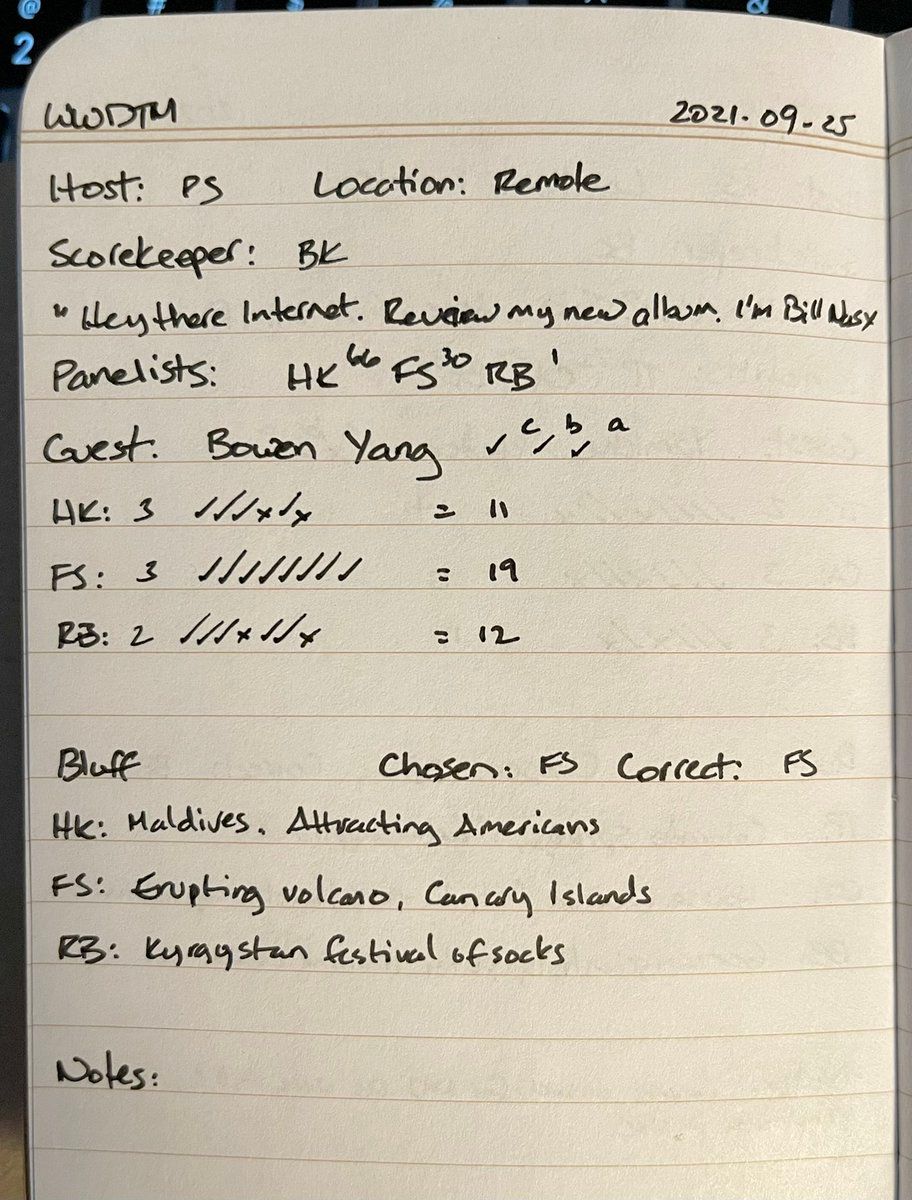 @ # $ % ^ &
2
WWDTM 2021-09-25
Host: PS Location: Remote
Scorekeeper: BK
"Hey there Internet. Review my new album. I'm Bill Nas x
Panelists: HK 66 FS 30 RB 1
Guest: Bowen Yang ✓ c ✓ b ✓ a
HK: 3 ✓✓✓x✓x = 11
FS: 3 ✓✓✓✓✓✓✓✓ = 19
RB: 2 ✓✓✓x✓✓x = 12
Bluff Chosen: FS Correct: FS
HK: Maldives. Attracting Americans
FS: Erupting volcano, Canary Islands
RB: Kyragystan festival of socks
Notes: